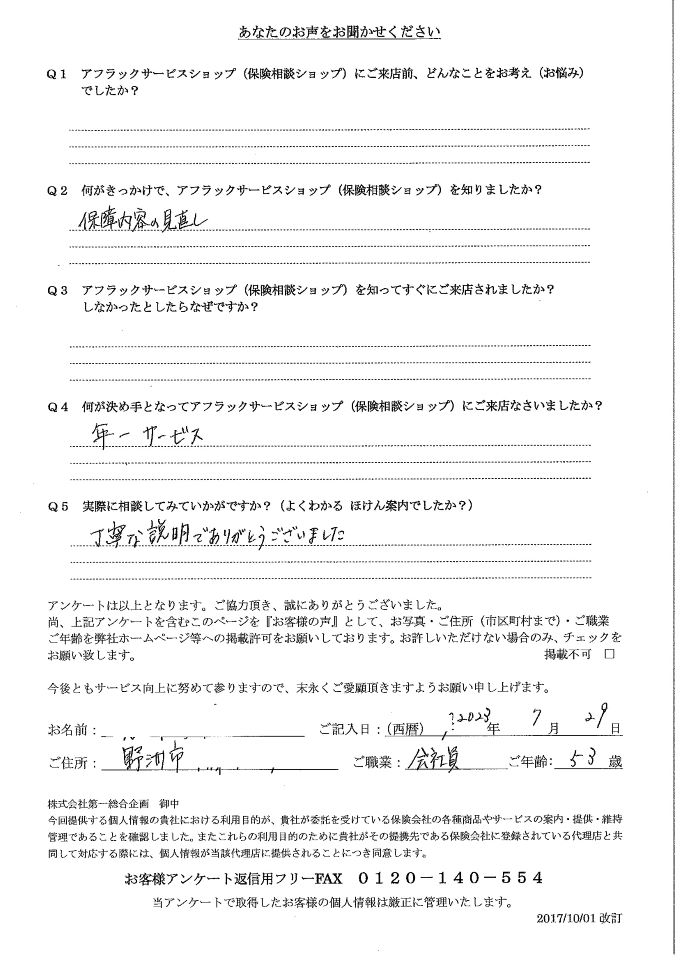 あなたのお声をお聞かせください
Q1 アフラックサービスショップ（保険相談ショップ）にご来店前、どんなことをお考え（お悩み）
でしたか？
Q2 何がきっかけで、アフラックサービスショップ（保険相談ショップ）を知りましたか？
保障内容の見直し
Q3 アフラックサービスショップ（保険相談ショップ）を知ってすぐにご来店されましたか？
しなかったとしたらなぜですか？
Q4 何が決め手となってアフラックサービスショップ（保険相談ショップ）にご来店なさいましたか？
年一サービス
Q5 実際に相談してみていかがですか？（よくわかる ほけん案内でしたか？）
丁寧な説明でありがとうございました
アンケートは以上となります。ご協力頂き、誠にありがとうございました。
尚、上記アンケートを含むこのページを『お客様の声』として、お写真・ご住所（市区町村まで）・ご職業
ご年齢を弊社ホームページ等への掲載許可をお願いしております。お許しいただけない場合のみ、チェックを
お願い致します。 掲載不可 □
今後ともサービス向上に努めて参りますので、末永くご愛顧頂きますようお願い申し上げます。
お名前： ご記入日：（西暦） 2023 年 7 月 29 日
ご住所： 野洲市 ご職業：会社員 ご年齢：53 歳
株式会社第一総合企画 御中
今回提供する個人情報の貴社における利用目的が、貴社が委託を受けている保険会社の各種商品やサービスの案内・提供・維持
管理であることを確認しました。またこれらの利用目的のために貴社がその提携先である保険会社に登録されている代理店と共
同して対応する際には、個人情報が当該代理店に提供されることにつき同意します。
お客様アンケート返信用フリーFAX 0120－140－554
当アンケートで取得したお客様の個人情報は厳正に管理いたします。
2017/10/01 改訂